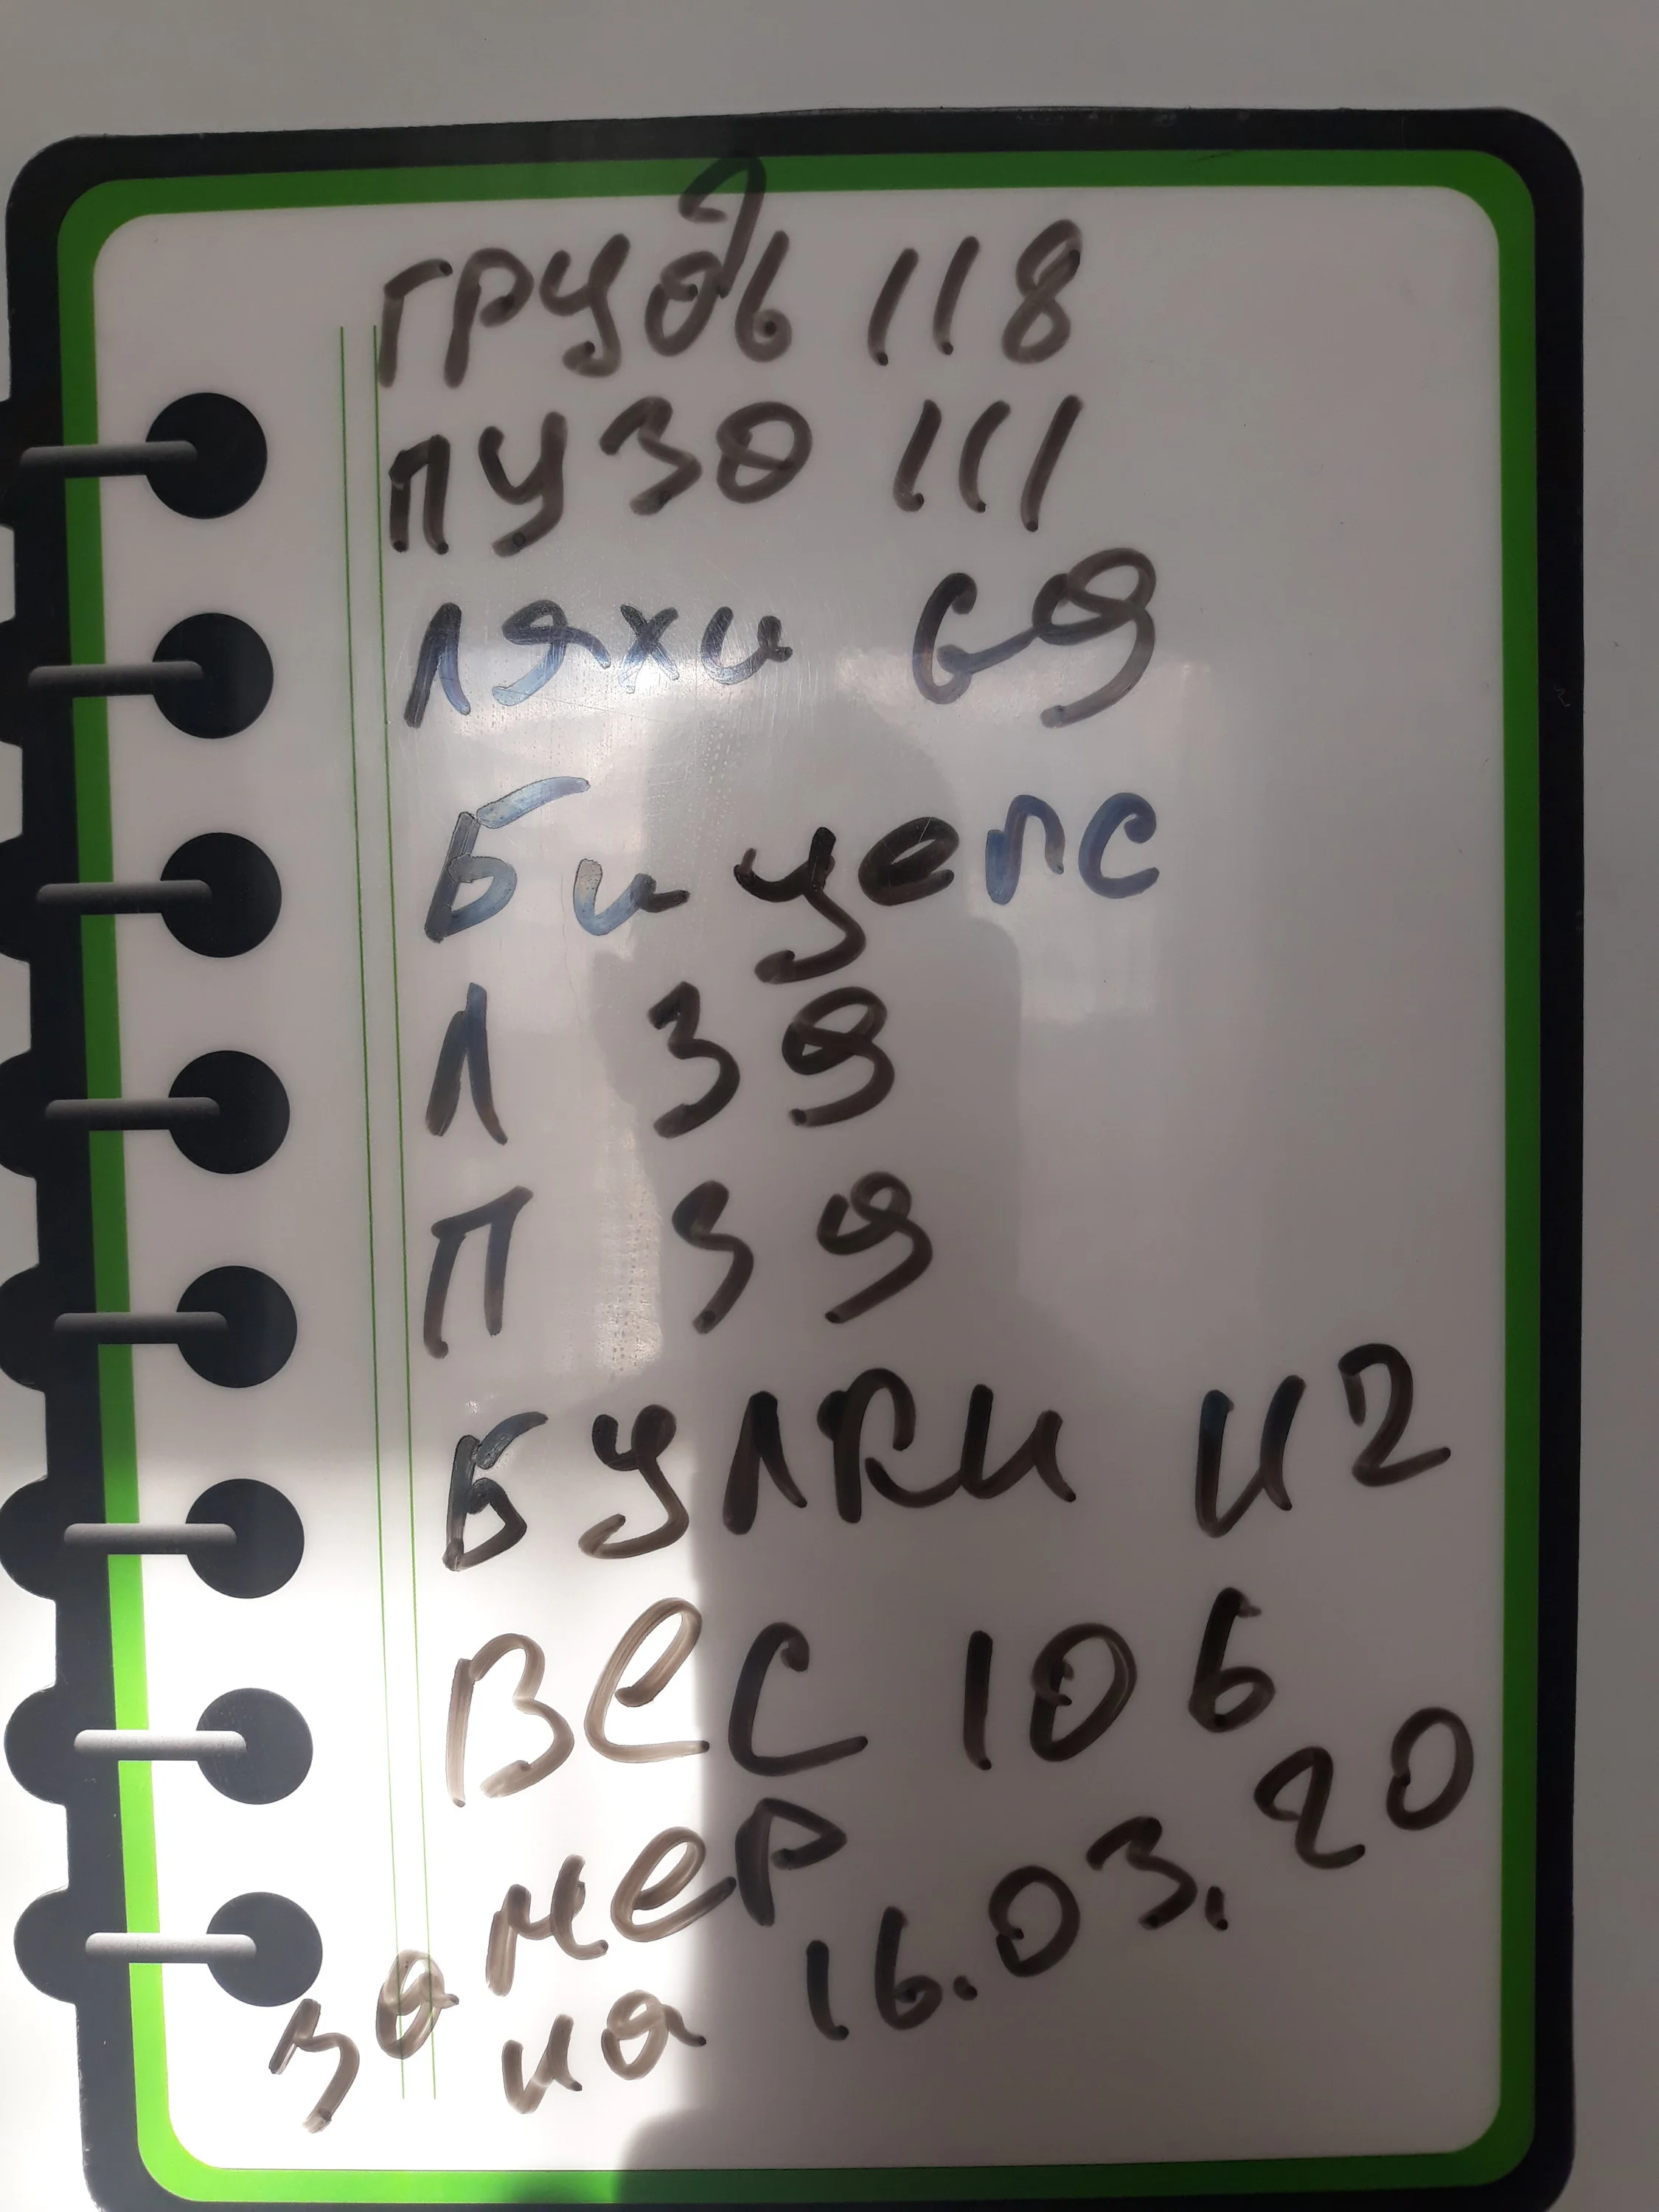 грудь 118
пузо 111
ляхи 69
Бицепс
Л 39
П 39
Булки 112
Вес 106
замер
на 16.03.20